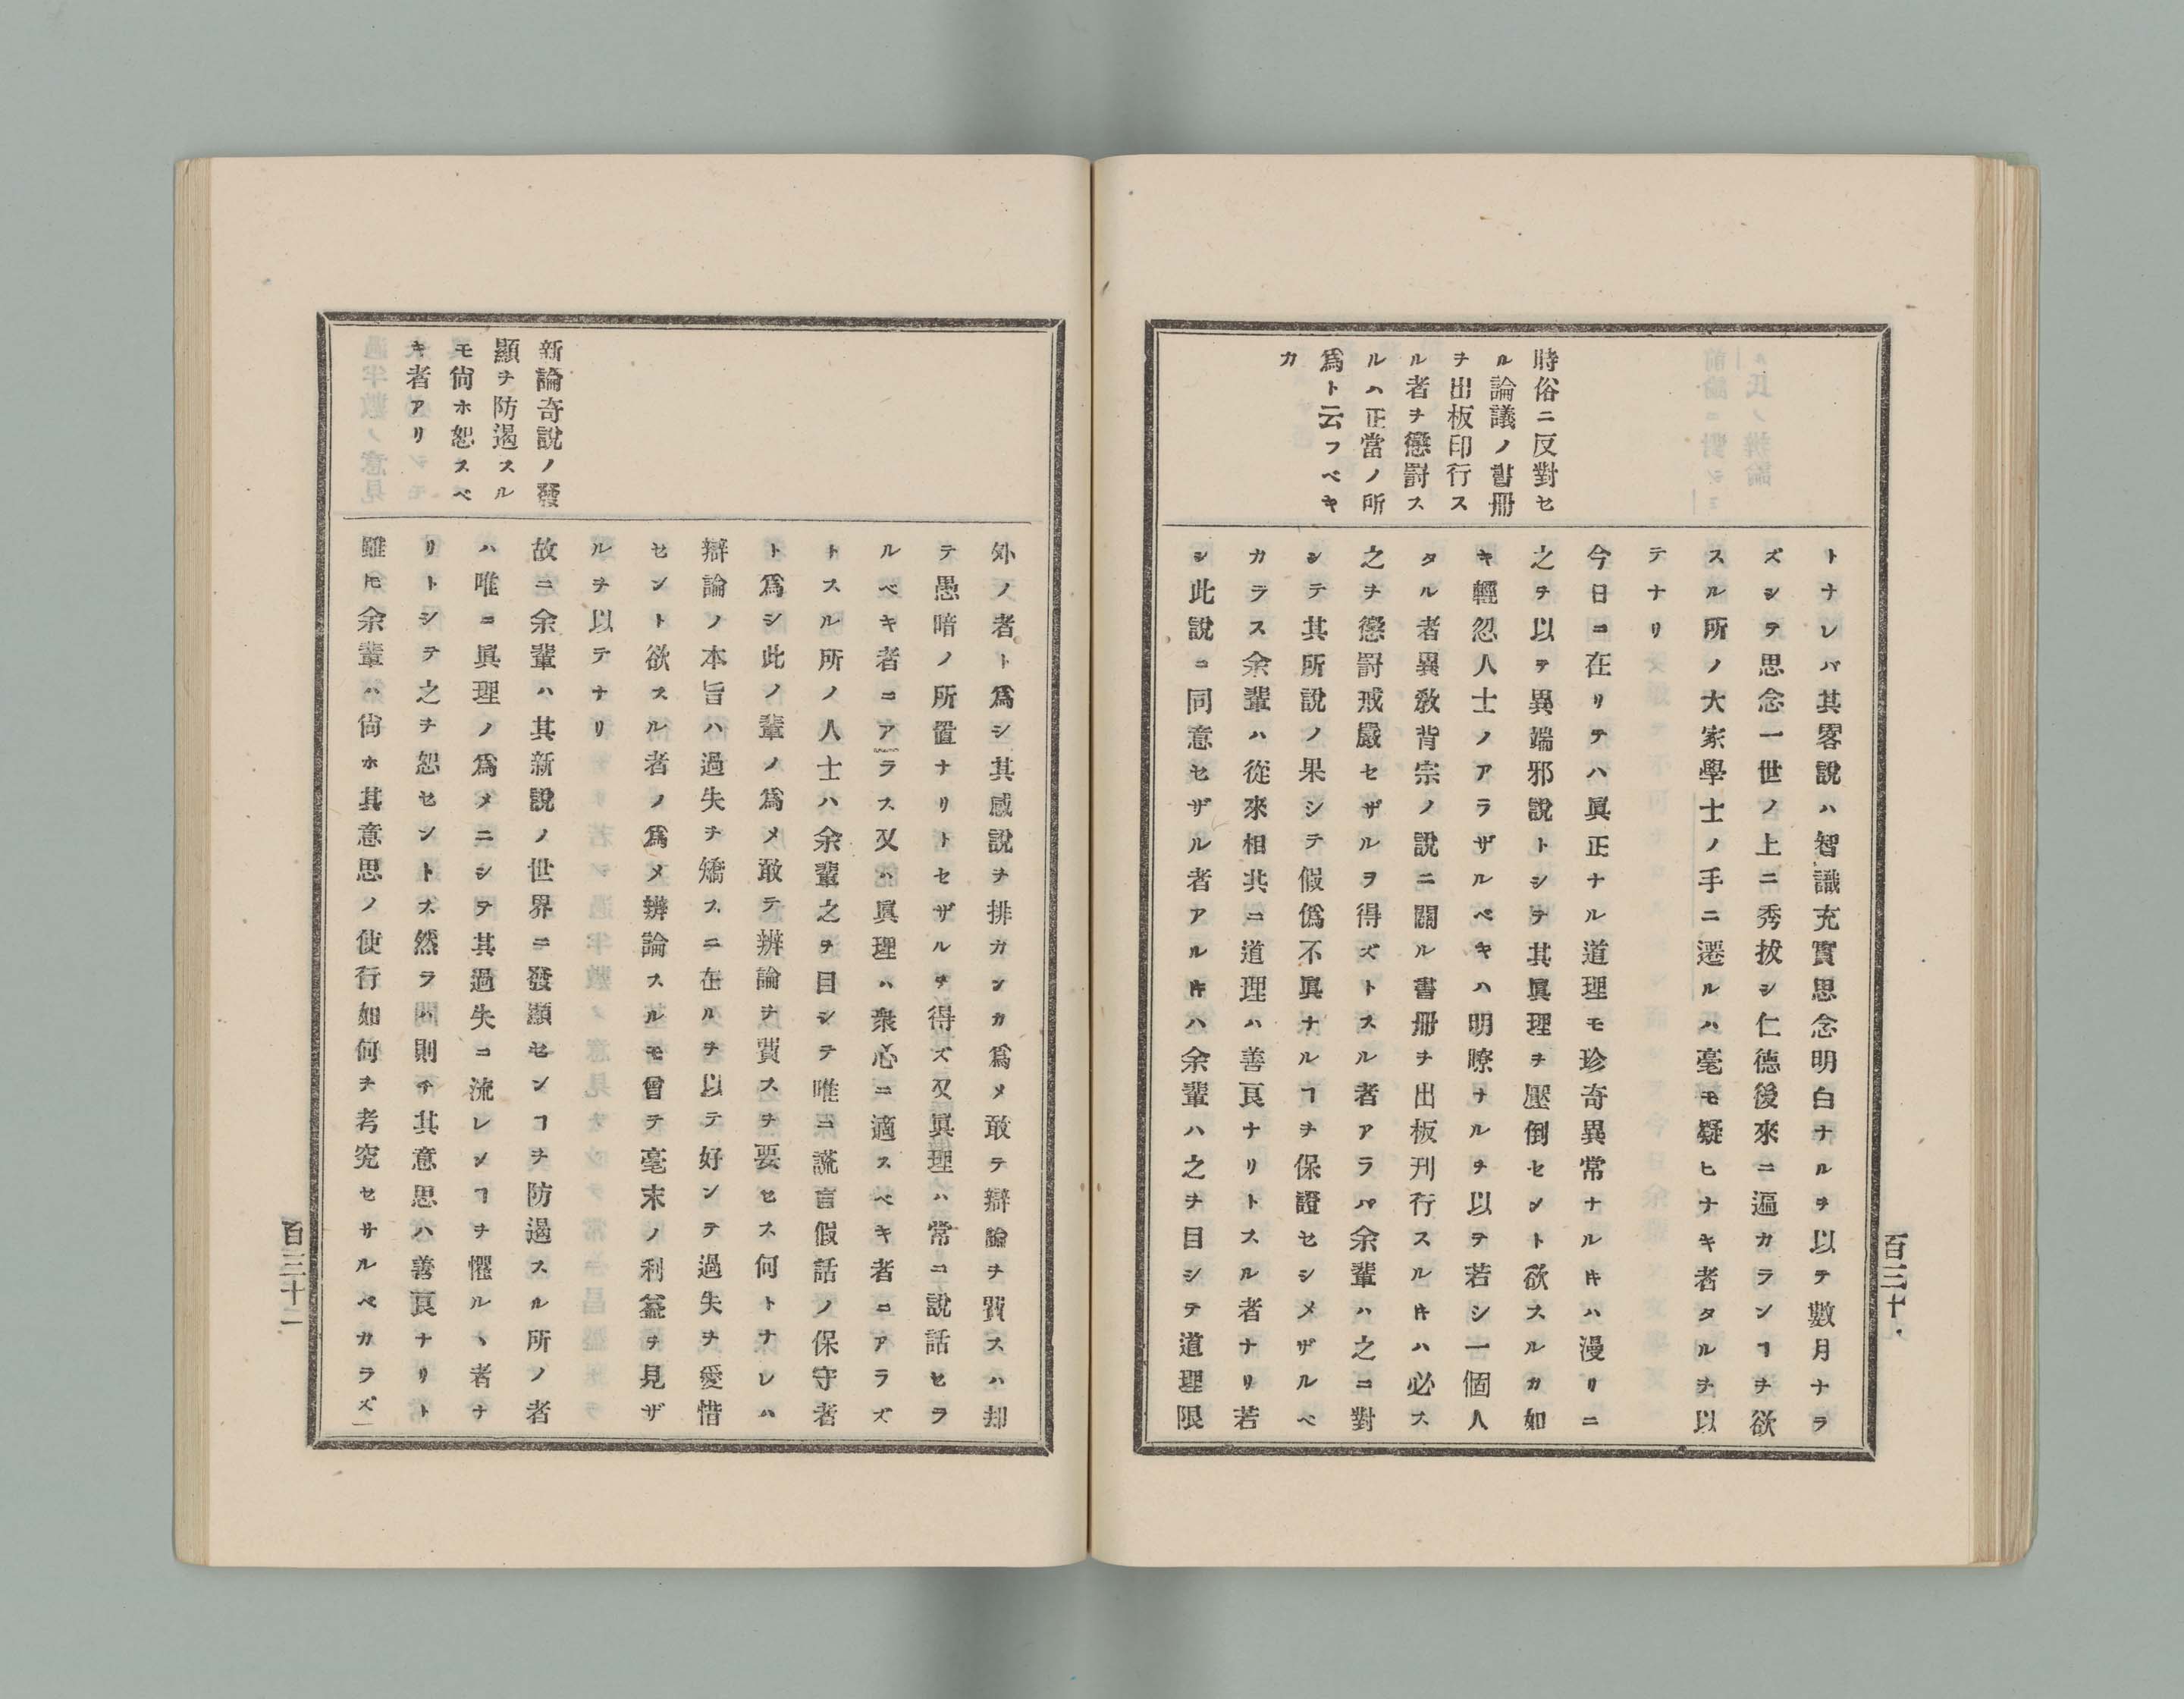 時俗ニ反對セ
ル論議ノ書册
ヲ出板印行ス
ル者ヲ懲罸ス
ルハ正當ノ所
爲ト云フベキ
カ
トナレバ其畧說ハ智識充實思念明白ナルヲ以テ數月ナラ
ズシテ思念一世ノ上ニ秀拔シ仁德後來ニ遍カランヿヲ欲
スル所ノ大家學士ノ手ニ遷ルハ毫モ疑ヒナキ者タルヲ以
テナリ
今日ニ在リテハ眞正ナル道理モ珍奇異常ナルキハ漫リニ
之ヲ以テ異端邪說トシテ其眞理ヲ壓倒セント欲スルガ如
キ輕忽人士ノアラザルベキハ明瞭ナルヲ以テ若シ一個人
タル者異敎背宗ノ說ニ關ル書册ヲ出板刊行スルキハ必ス
之ヲ懲罸戒嚴セザルヲ得ズトスル者アラバ余輩ハ之ニ對
シテ其所說ノ果シテ假僞不眞ナルヿヲ保證セシメザルベ
カラス余輩ハ從來相共ニ道理ハ善良ナリトスル者ナリ若
シ此說ニ同意セザル者アルキハ余輩ハ之ヲ目シテ道理限
百三十
新論奇說ノ發
顯ヲ防遏スル
モ尙ホ恕スベ
キ者アリ
外ノ者ト爲シ其感說ヲ排カンカ爲メ敢テ辯論ヲ費スハ却
テ愚暗ノ所置ナリトセザルヲ得ズ又眞理ハ常ニ說話セラ
ルベキ者ニアラス又ハ眞理ハ衆心ニ適スベキ者ニアラズ
トスル所ノ人士ハ余輩之ヲ目シテ唯ニ謊言假話ノ保守者
ト爲シ此ノ輩ノ爲メ敢テ辨論ヲ費スヲ要セス何トナレハ
辯論ノ本旨ハ過失ヲ矯スニ在ルヲ以テ好ンテ過失ヲ愛惜
セント欲スル者ノ爲メ辨論スルモ曾テ毫末ノ利益ヲ見ザ
ルヲ以テナリ
故ニ余輩ハ其新說ノ世界ニ發顯センヿヲ防遏スル所ノ者
ハ唯ニ眞理ノ爲メニシテ其過失ニ流レンヿヲ懼ルヽ者ナ
リトシテ之ヲ恕セントス然ラハ則チ其意思ハ善良ナリト
雖𪜈余輩ハ尙ホ其意思ノ使行如何ヲ考究セサルベカラズ
百三十一